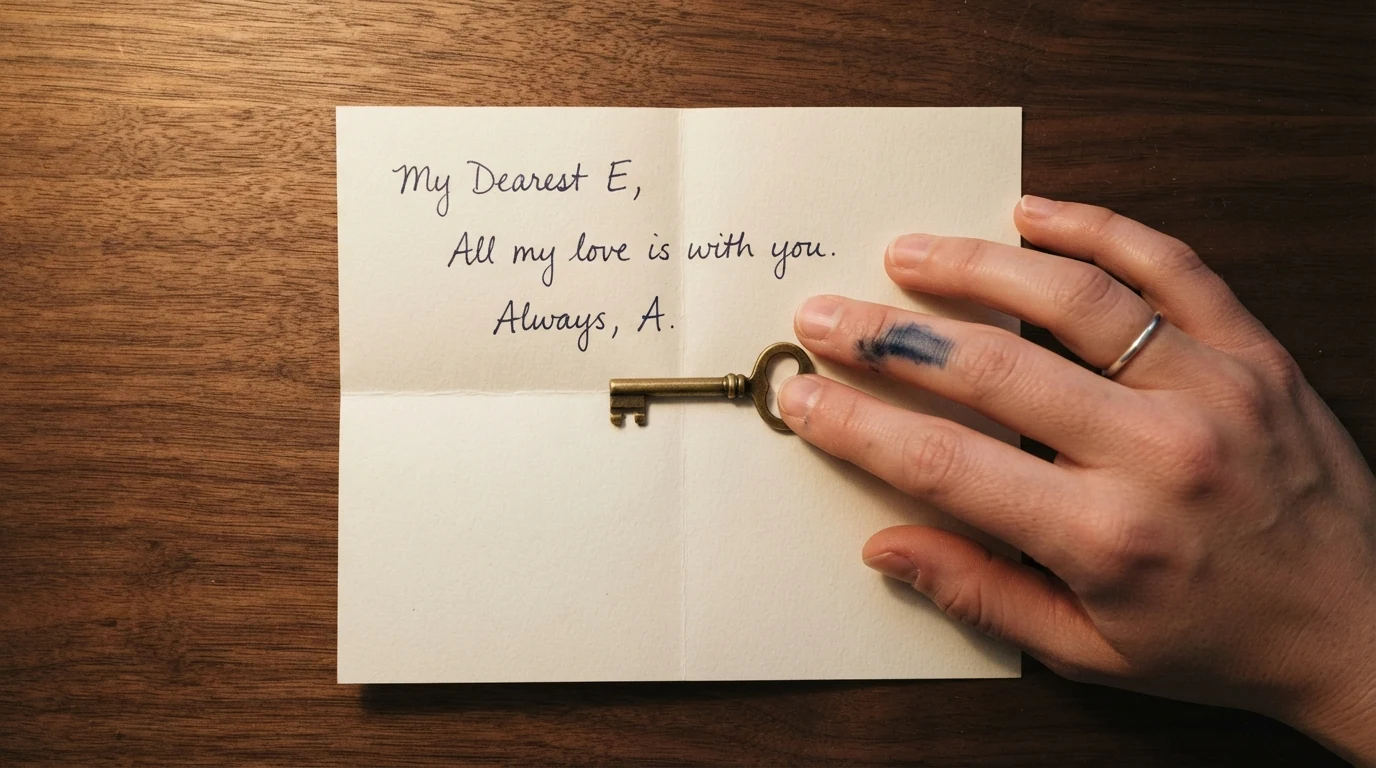 My Dearest E,
All my love is with you.
Always, A.